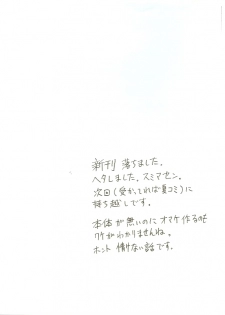 新刊 落ちました。
ヘタしました。スミマセン。
次回(受かってれば夏コミ)に
持ち越しです。
本体が無いのにオマケ作るのも
ワケがわかりませんね。
ホント 情けない話です。